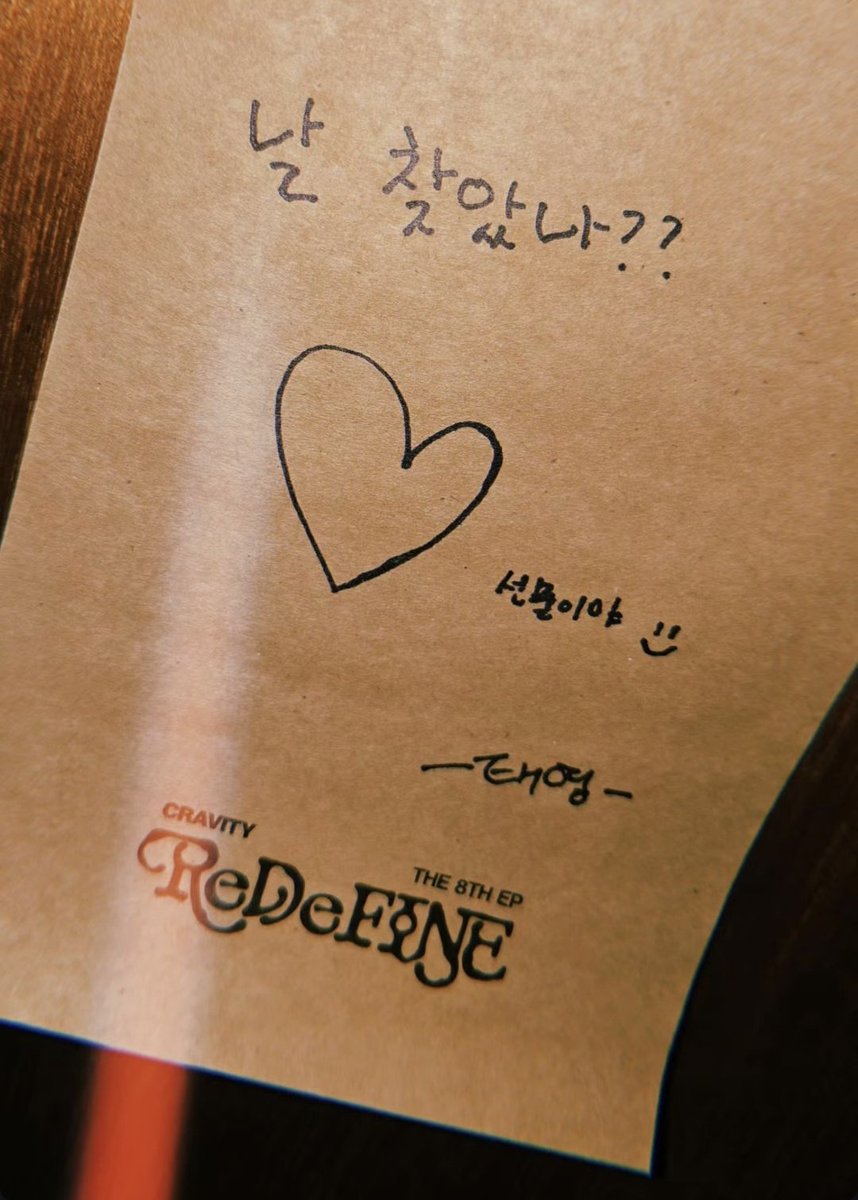 날 찾았나??
선물이야
-태영-
CRAVITY
THE 8TH EP
ReDeFINE